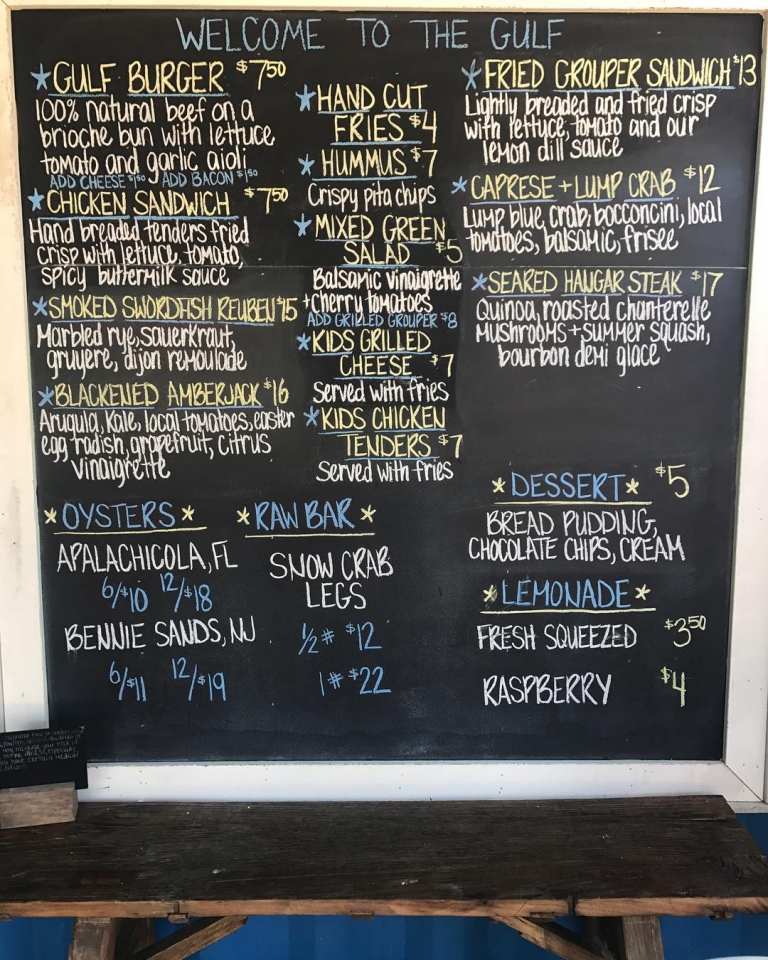 WELCOME TO THE GULF
*GULF BURGER $7.50
100% natural beef on a
brioche bun with lettuce
tomato and garlic aioli
ADD CHEESE $1.50 ADD BACON $1.50
*CHICKEN SANDWICH $7.50
Hand breaded tenders fried
crisp with lettuce, tomato,
spicy buttermilk sauce
*SMOKED SWORDFISH REUBEN $15
Marbled rye, sauerkraut,
gruyere, dijon remoulade
*BLACKENED AMBERJACK $16
Arugula, Kale, local tomatoes, easter
egg radish, grapefruit, citrus
vinaigrette
*HAND CUT
FRIES $4
*HUMMUS $7
Crispy pita chips
*MIXED GREEN
SALAD $5
Balsamic vinaigrette
+cherry tomatoes
ADD GRILLED GROUPER $8
*KIDS GRILLED
CHEESE $7
Served with fries
*KIDS CHICKEN
TENDERS $7
Served with fries
*FRIED GROUPER SANDWICH $13
Lightly breaded and fried crisp
with lettuce, tomato and our
lemon dill sauce
*CAPRESE + LUMP CRAB $12
Lump blue crab, bocconcini, local
tomatoes, balsamic, frisee
*SEARED HANGAR STEAK $17
Quinoa, roasted chanterelle
mushrooms + summer squash,
bourbon demi glace
*OYSTERS*
APALACHICOLA, FL
6/$10 12/$18
BENNIE SANDS, NJ
6/$11 12/$19
*RAW BAR*
SNOW CRAB
LEGS
1/2# $12
1# $22
*DESSERT* $5
BREAD PUDDING,
CHOCOLATE CHIPS, CREAM
*LEMONADE*
FRESH SQUEEZED $3.50
RASPBERRY $4